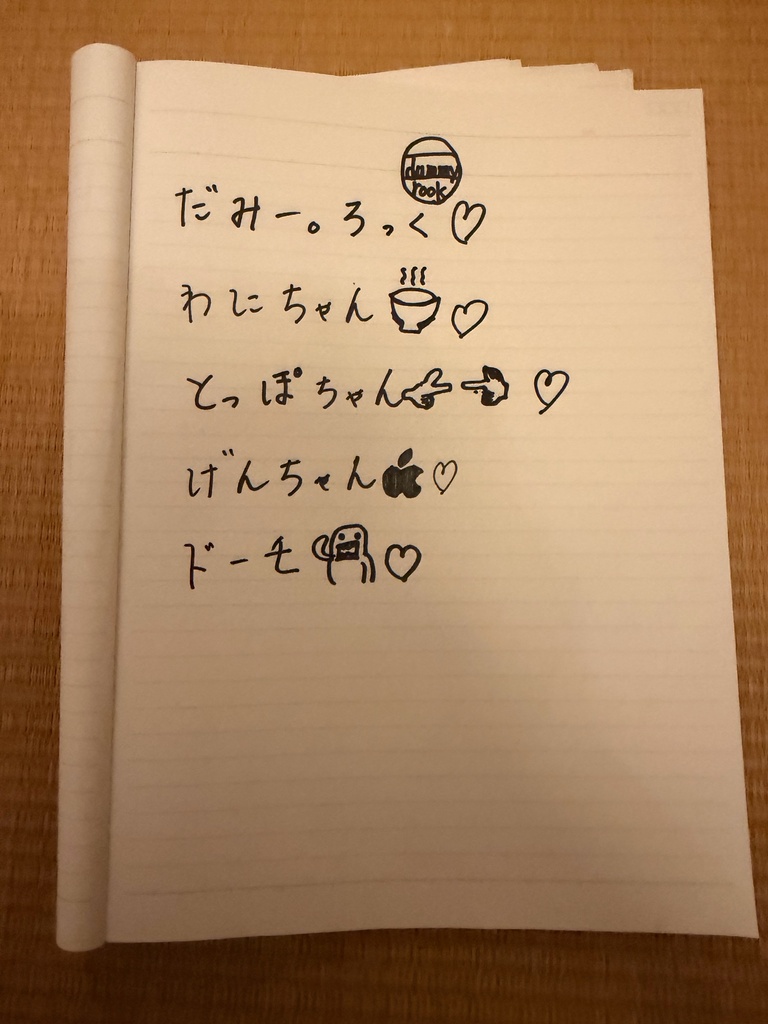 dummy
rock
だみー。ろっく♡
わにちゃん♡
とっぽちゃん♡
げんちゃん♡
ドーモ♡